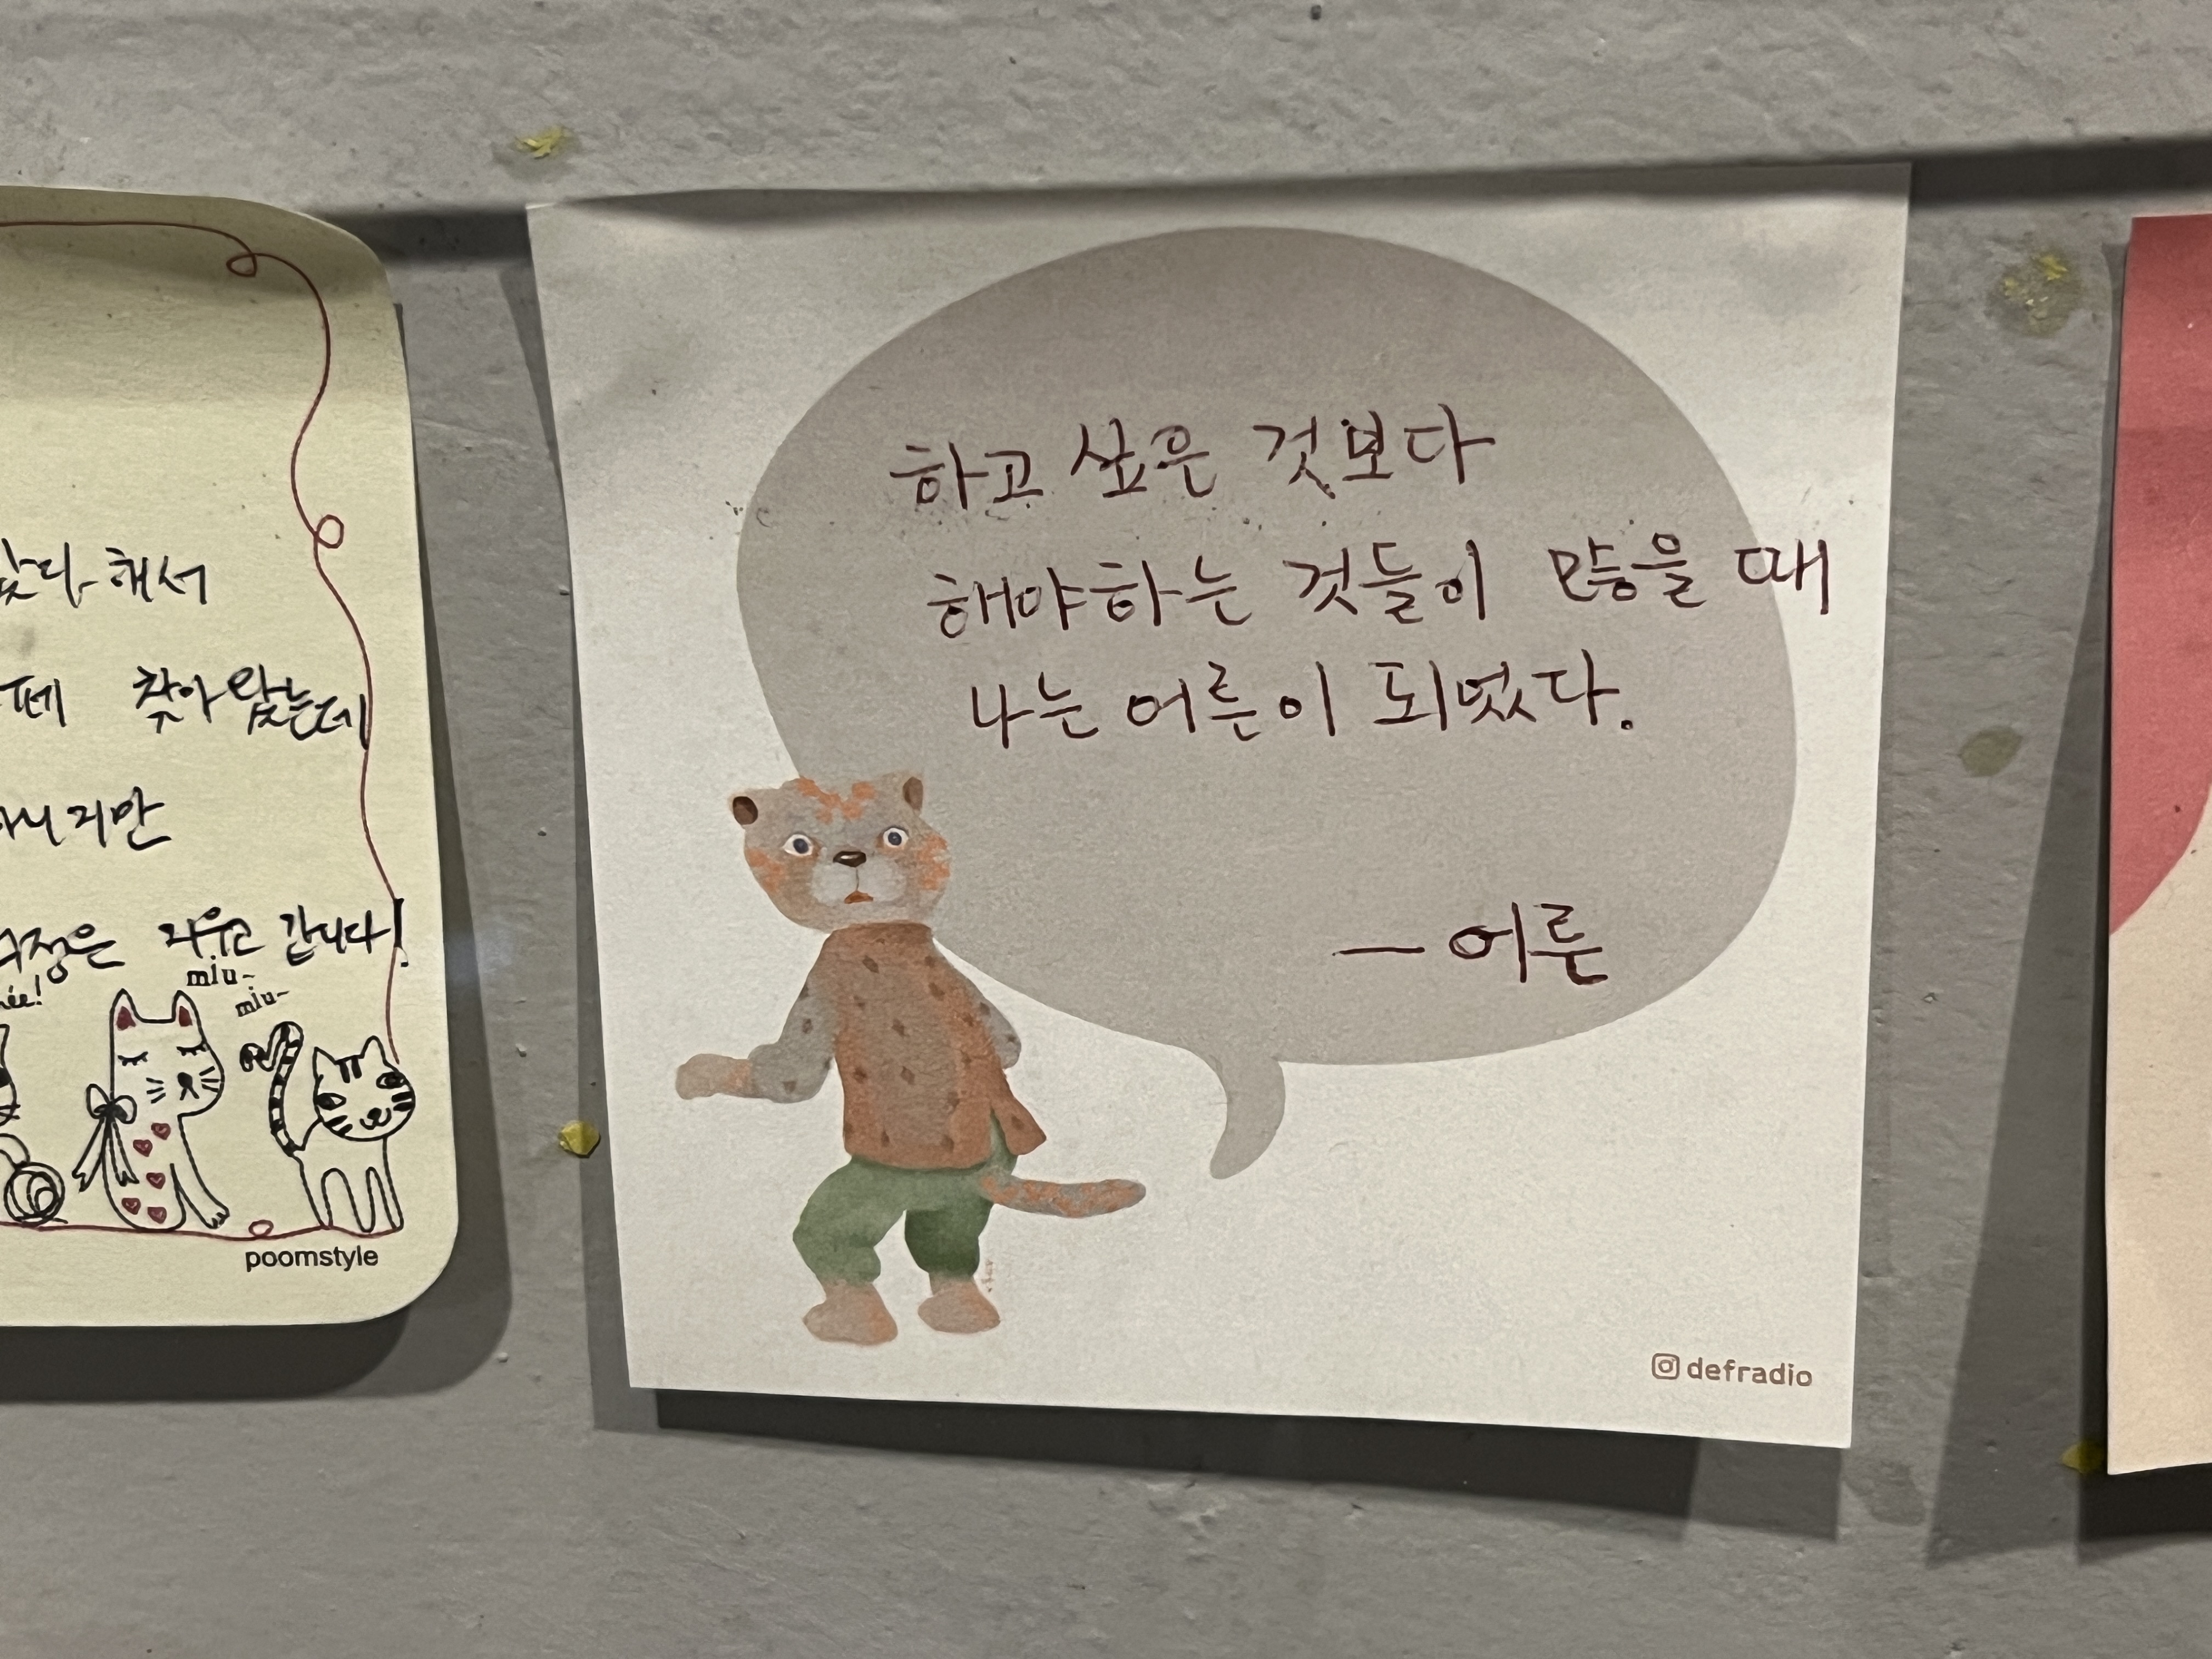 해서
찾아왔는데
지우고 갑니다!
miu~
miu~
poomstyle
하고 싶은 것보다
해야하는 것들이 많을 때
나는 어른이 되었다.
— 어른
defradio